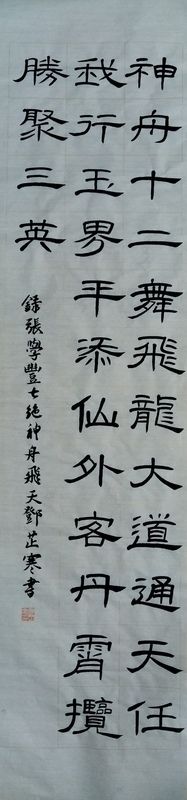 神舟十二舞飛龍大道通天任
我行玉界平添仙外客丹霄攬
勝聚三英
録張學豐七絕神舟飛天鄧芷寒書